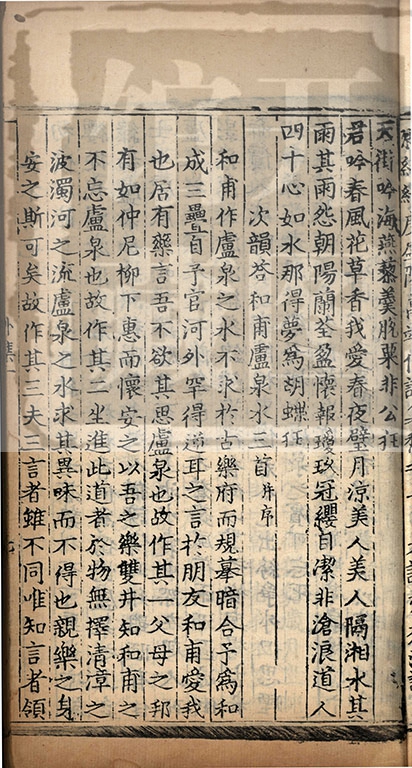 天街吟海燕藜羹脫粟非公狂
君吟春風花草香我愛春夜璧月涼美人美人隔湘水其
雨其雨怨朝陽蘭荃盈懷報瓊玖冠纓自潔非滄浪道人
四十心如水那得夢為胡蝶狂
次韻荅和甫盧泉水三首并序
和甫作盧泉之水不求於古樂府而規摹暗合予為和
成三疊自予官河外罕得逆耳之言於朋友和甫愛我
也居有藥言吾不欲其思盧泉也故作其一父母之邦
有如仲尼柳下惠而懷安之以吾之樂雙井知和甫之
不忘盧泉也故作其二坐進此道者於物無擇清漳之
波濁河之流盧泉之水求其異味而不得也親樂之身
安之斯可矣故作其三夫三言者雖不同唯知言者領
外集